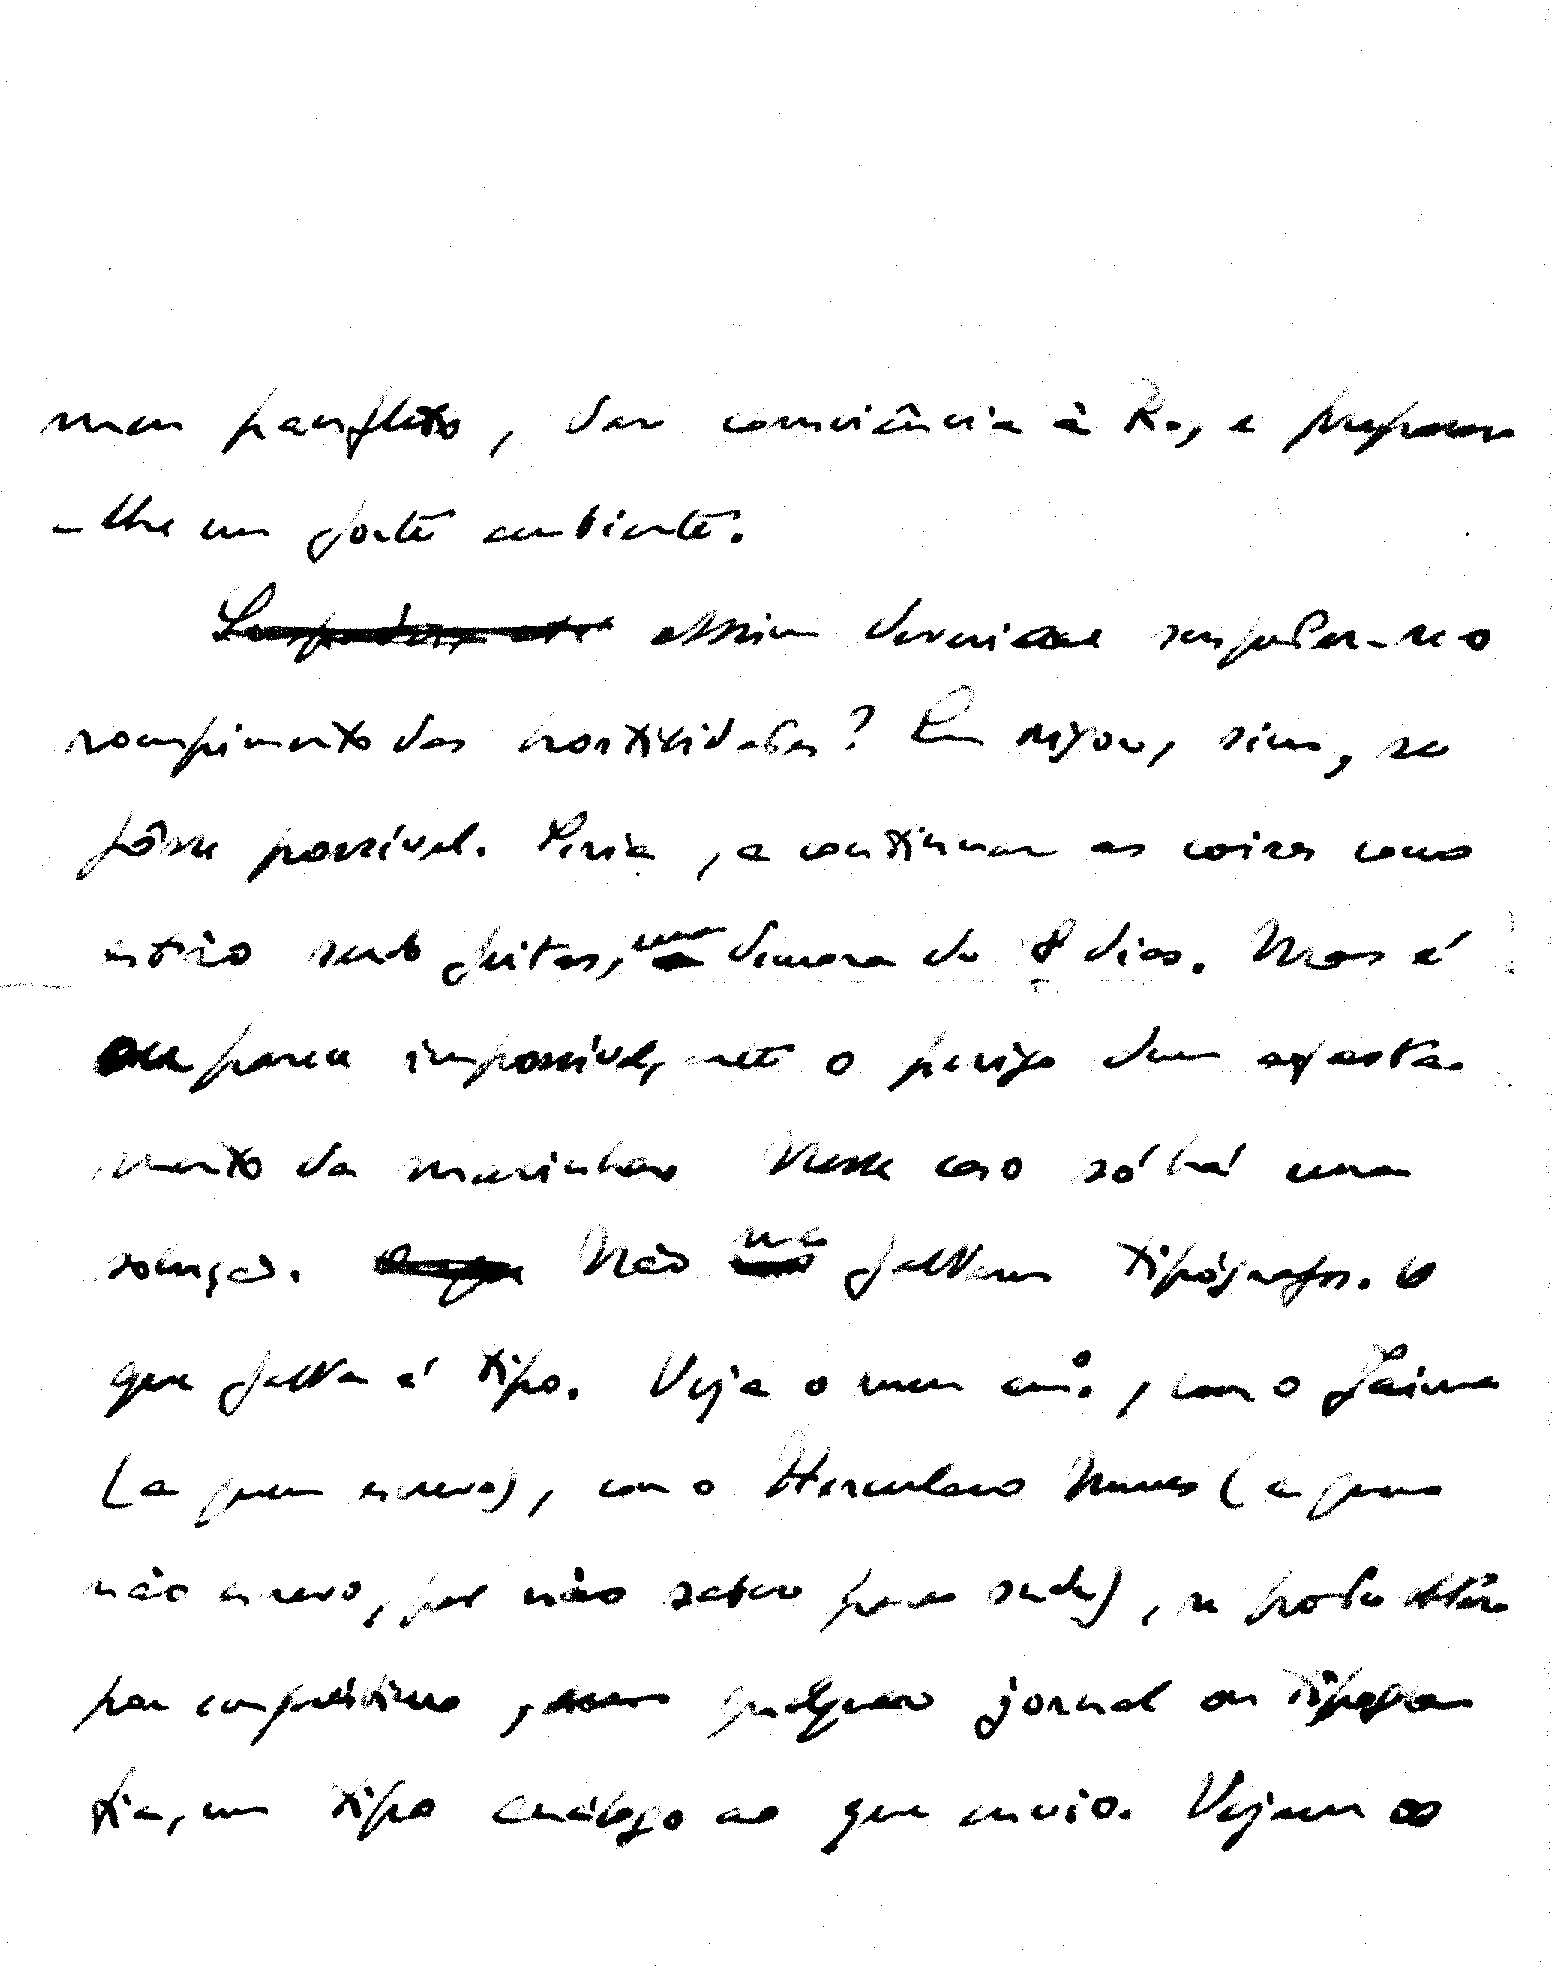 meu panfleto, dar consciência à R., e preparar
-lhe um forte ambiente.
assim deveria suspender-se o
rompimento das hostilidades? Em rigor, sim, se
fôsse possível. Seria, a continuar as coisas como
estão sendo feitas, uma demora de 8 dias. Mas é
ou parece impossível, ante o perigo dum afasta-
mento da marinha. Nesse caso só há uma
solução. Não me faltam tipógrafos. O
que falta é tipo. Veja o meu am.º, com o Jaime
(a quem escrevo), com o Herculano Nunes (a quem
não escrevo, por não saber para onde), se pode obter
por empréstimo, qualquer jornal ou tipogra-
fia, um tipo análogo ao que envio. Vejam os